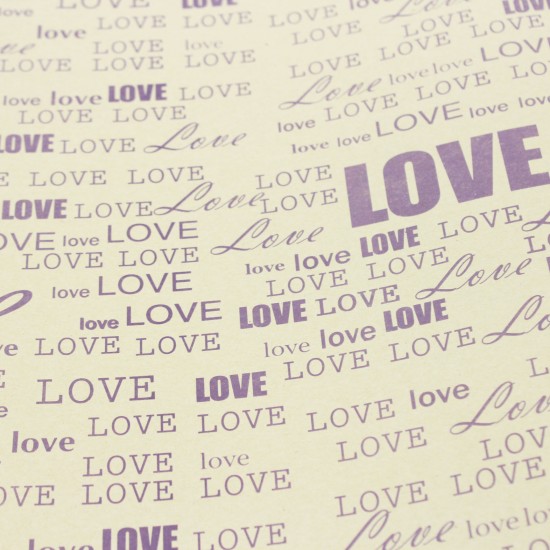 LOVE LOVE LOVE
love LOVE LOVE LOVE LOVE Love LOVE
LOVE LOVE love LOVE LOVE LOVE
LOVE LOVE LOVE LOVE LOVE LOVE LOVE
love love LOVE LOVE Love love love LOVE
LOVE LOVE love LOVE LOVE LOVE
LOVE LOVE Love love love LOVE love love
LOVE LOVE LOVE LOVE
LOVE LOVE Love LOVE LOVE
LOVE love LOVE Love LOVE LOVE
LOVE LOVE LOVE love love LOVE
love LOVE LOVE LOVE Love
love LOVE LOVE LOVE
LOVE LOVE love love LOVE
LOVE LOVE LOVE LOVE
LOVE LOVE LOVE love
love LOVE LOVE LOVE Love
LOVE love LOVE LOVE
LOVE LOVE LOVE LOVE LOVE
love LOVE LOVE Love love